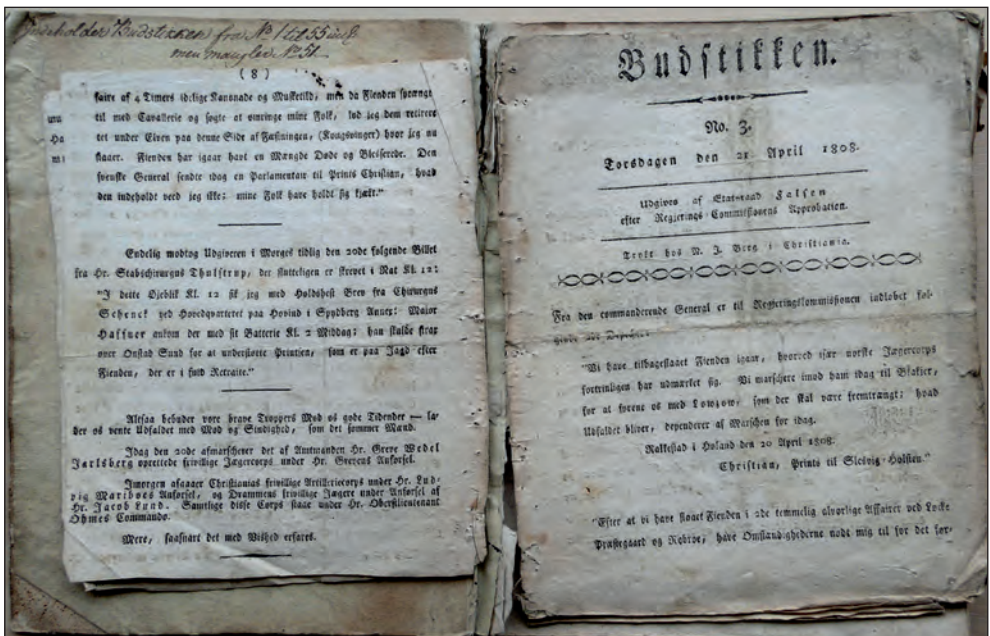 Indeholder Budstikken fra No 1 til 55 incl.
men mangler No 51.
( 8 )
faire af 4 Timers idelige Kanonade og Musketild, men da Fienden sprængte
til med Cavallerie og søgte at omringe mine Folk, lod jeg dem retirere
tet under Elven paa denne Side af Fæstningen, (Kongsvinger) hvor jeg nu
staaer. Fienden har igaar havt en Mængde Døde og Blesserede. Den
svenske General sendte idag en Parlamentair til Prints Christian, hvad
den indeholdt veed jeg ikke; mine Folk have holdt sig kjækt."
Endelig modtog Udgiveren i Morges tidlig den 20de følgende Billet
fra Hr. Stabschirurgus Thulstrup, der slutteligen er skrevet i Nat Kl. 12:
"I dette Øjeblik Kl. 12 fik jeg med Holdshest Brev fra Chirurgus
Schenck ved Hovedquarteret paa Hovind i Spydberg Annex: Maior
Haffner ankom der med sit Batterie Kl. 2 Middag; han skulde strax
over Onstad Sund for at understøtte Printsen, som er paa Jagd efter
Fienden, der er i fuld Retraite."
Altsaa bebuder vore brave Troppers Mod os gode Tidender — la-
der os vente Udfaldet med Mod og Sindighed, som det sømmer Mænd.
Idag den 20de afmarscherer det af Amtmanden Hr. Greve Wedel
Jarlsberg oprettede frivillige Jægercorps under Hr. Grevens Anførsel.
Imorgen afgaaer Christianias frivillige Artilleriecorps under Hr. Lud-
vig Mariboes Anførsel, og Drammens frivillige Jægere under Anførsel af
Hr. Jacob Lund. Samtlige disse Corps staae under Hr. Oberstlieutenant
Ohmes Commando.
Mere, saasnart det med Vished erfares.
Budstikken.
No. 3.
Torsdagen den 21 April 1808.
Udgives af Etatsraad Falsen
efter Regierings-Commissionens Approbation.
Trykt hos N. J. Berg i Christiania.
Fra den commanderende General er til Regieringskommissionen indløbet føl-
gende Depesche:
"Vi have tilbageslaaet Fienden igaar, hvorved især norske Jægercorps
fortrinligen har udmærket sig. Vi marschere imod ham idag til Blakier,
for at forene os med Lowzow, som der skal være fremtrængt; hvad
Udfaldet bliver, dependerer af Marschen for idag.
Rakkestad i Høland den 20 April 1808.
Christian, Prints til Slesvig-Holsten."
"Efter at vi have slaaet Fienden i 2de temmelig alvorlige Affairer ved Lycke
Præstegaard og Rebroe, have Omstændighederne nødt mig til for det før-